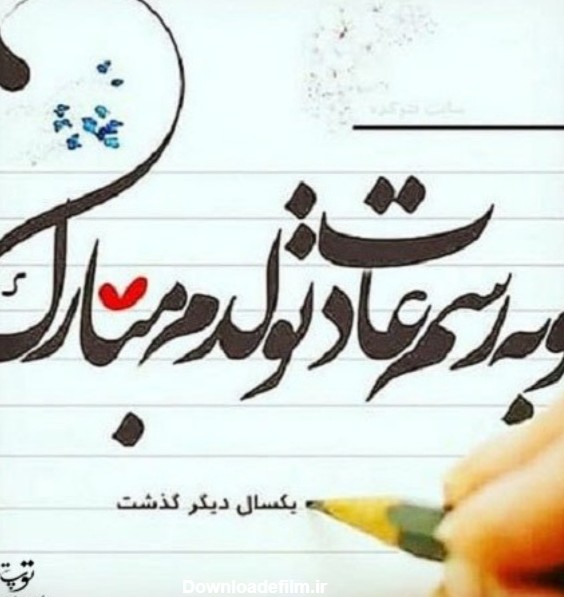 سایت تنوکده
و به رسم عادت تولدم مبارک
یکسال دیگر گذشت
توپست
Downloadefilm.ir